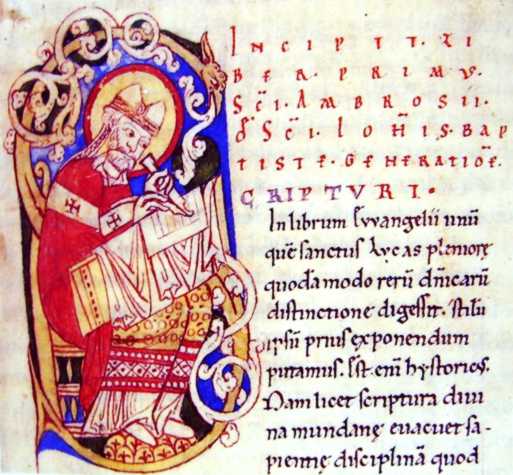 INCIPIT. LI
BER. PRIMUS.
SC̄I. AMBROSII.
D̄ SC̄I. IOH̄IS. BAP
TISTE. GENERATIOĒ.
CRIPTURI.
In librum Euuangelii unū
quē sanctus Lucas pleniorę
quodā modo rerū dn̄icarū
distinctione digessit. stilū
ipsū prius exponendum
putamus. Est enī hystoricꝰ.
Nam licet scriptura diui
na mundanę euacuet sa-
pientię disciplinā quod